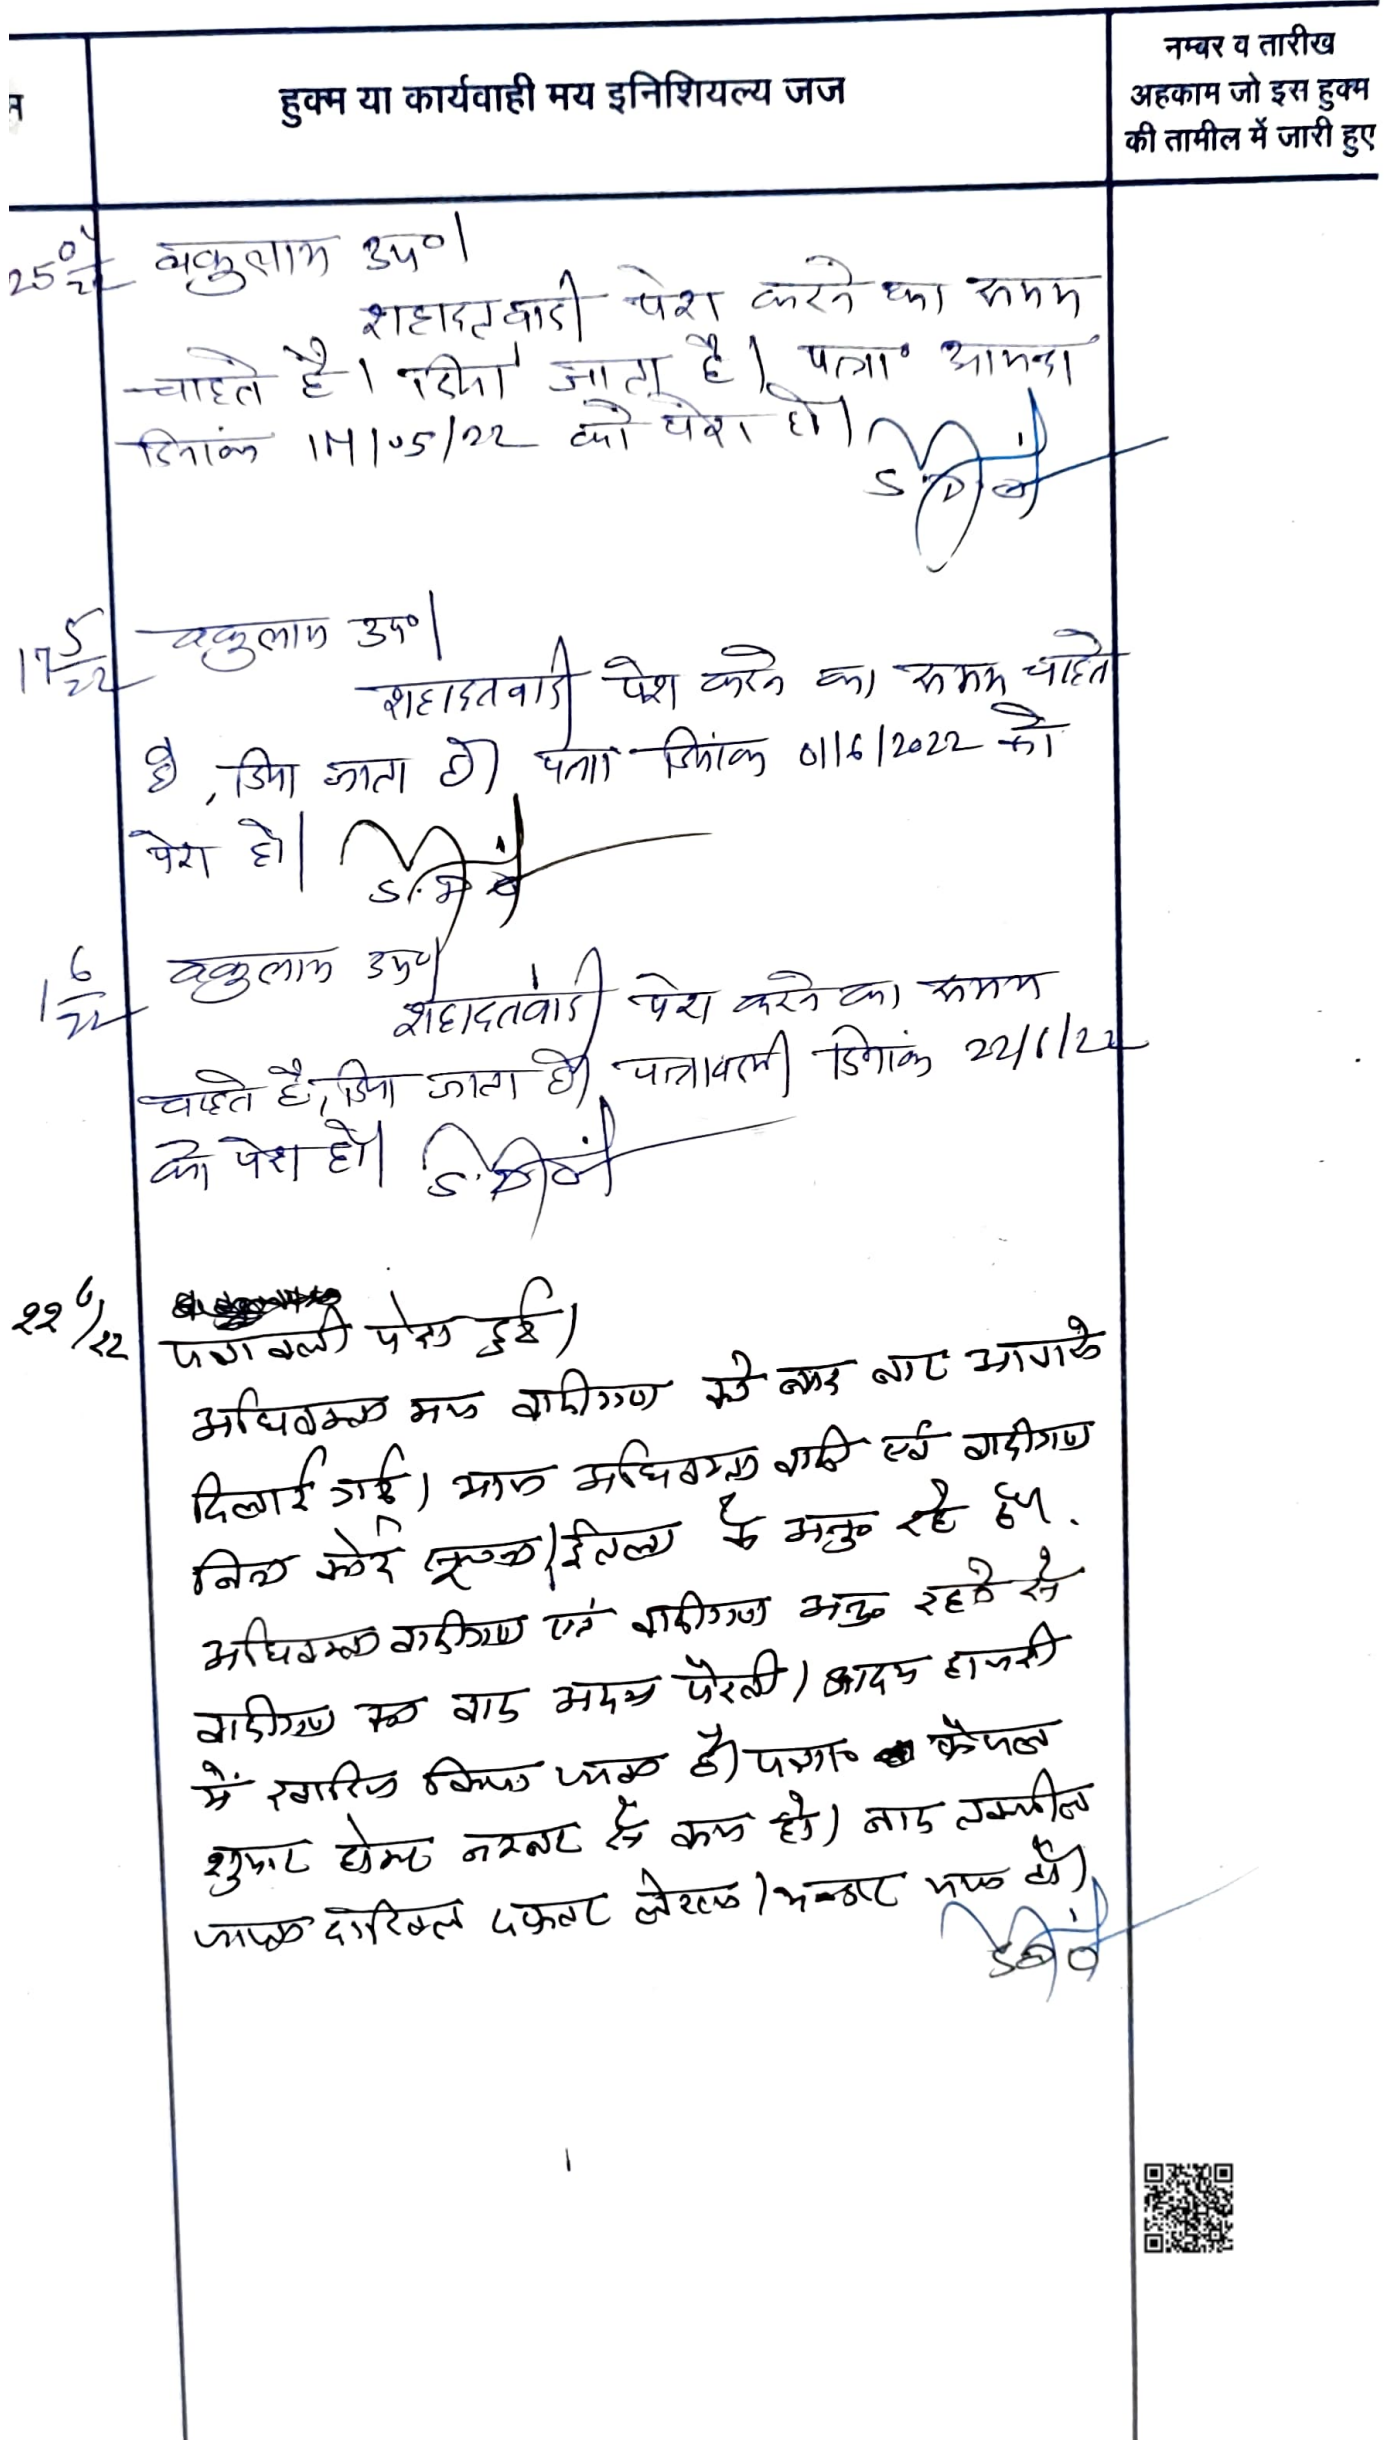 हुक्म या कार्यवाही मय इनिशियल्य जज
नम्बर व तारीख
अहकाम जो इस हुक्म
की तामील में जारी हुए
वकुलाय उप०।
शहादतवादी पेश करने का समय
चाहते है। दिया जाता है। पत्रा० आयन्दा
दिनांक 17/05/22 को पेश हो।
17 5/22 वकुलाय उप०।
शहादतवादी पेश करने का समय चाहते
है, दिया जाता है। पत्रा० दिनांक 01/6/2022 को
पेश हो।
1 6/22 वकुलाय उप०।
शहादतवादी पेश करने का समय
चाहते है, दिया जाता है। पत्रावली दिनांक 22/6/22
को पेश हो।
22 6/22 पत्रावली पेश हुई।
अधिवक्ता मय वादीगण को बार बार आवाजे
दिलाई गई। अधिवक्ता वादी एवं वादीगण
बिना कोई सूचना/ईतला के रहे है।
अधिवक्ता वादीगण एवं वादीगण रहने से
वादीगण का वाद अदम पैरवी/अदम हाजरी
में खारिज किया जाता है। पत्रा० फैसल
शुमार होकर नम्बर से कम हो। बाद तकमील
दाखिल दफ्तर हो।